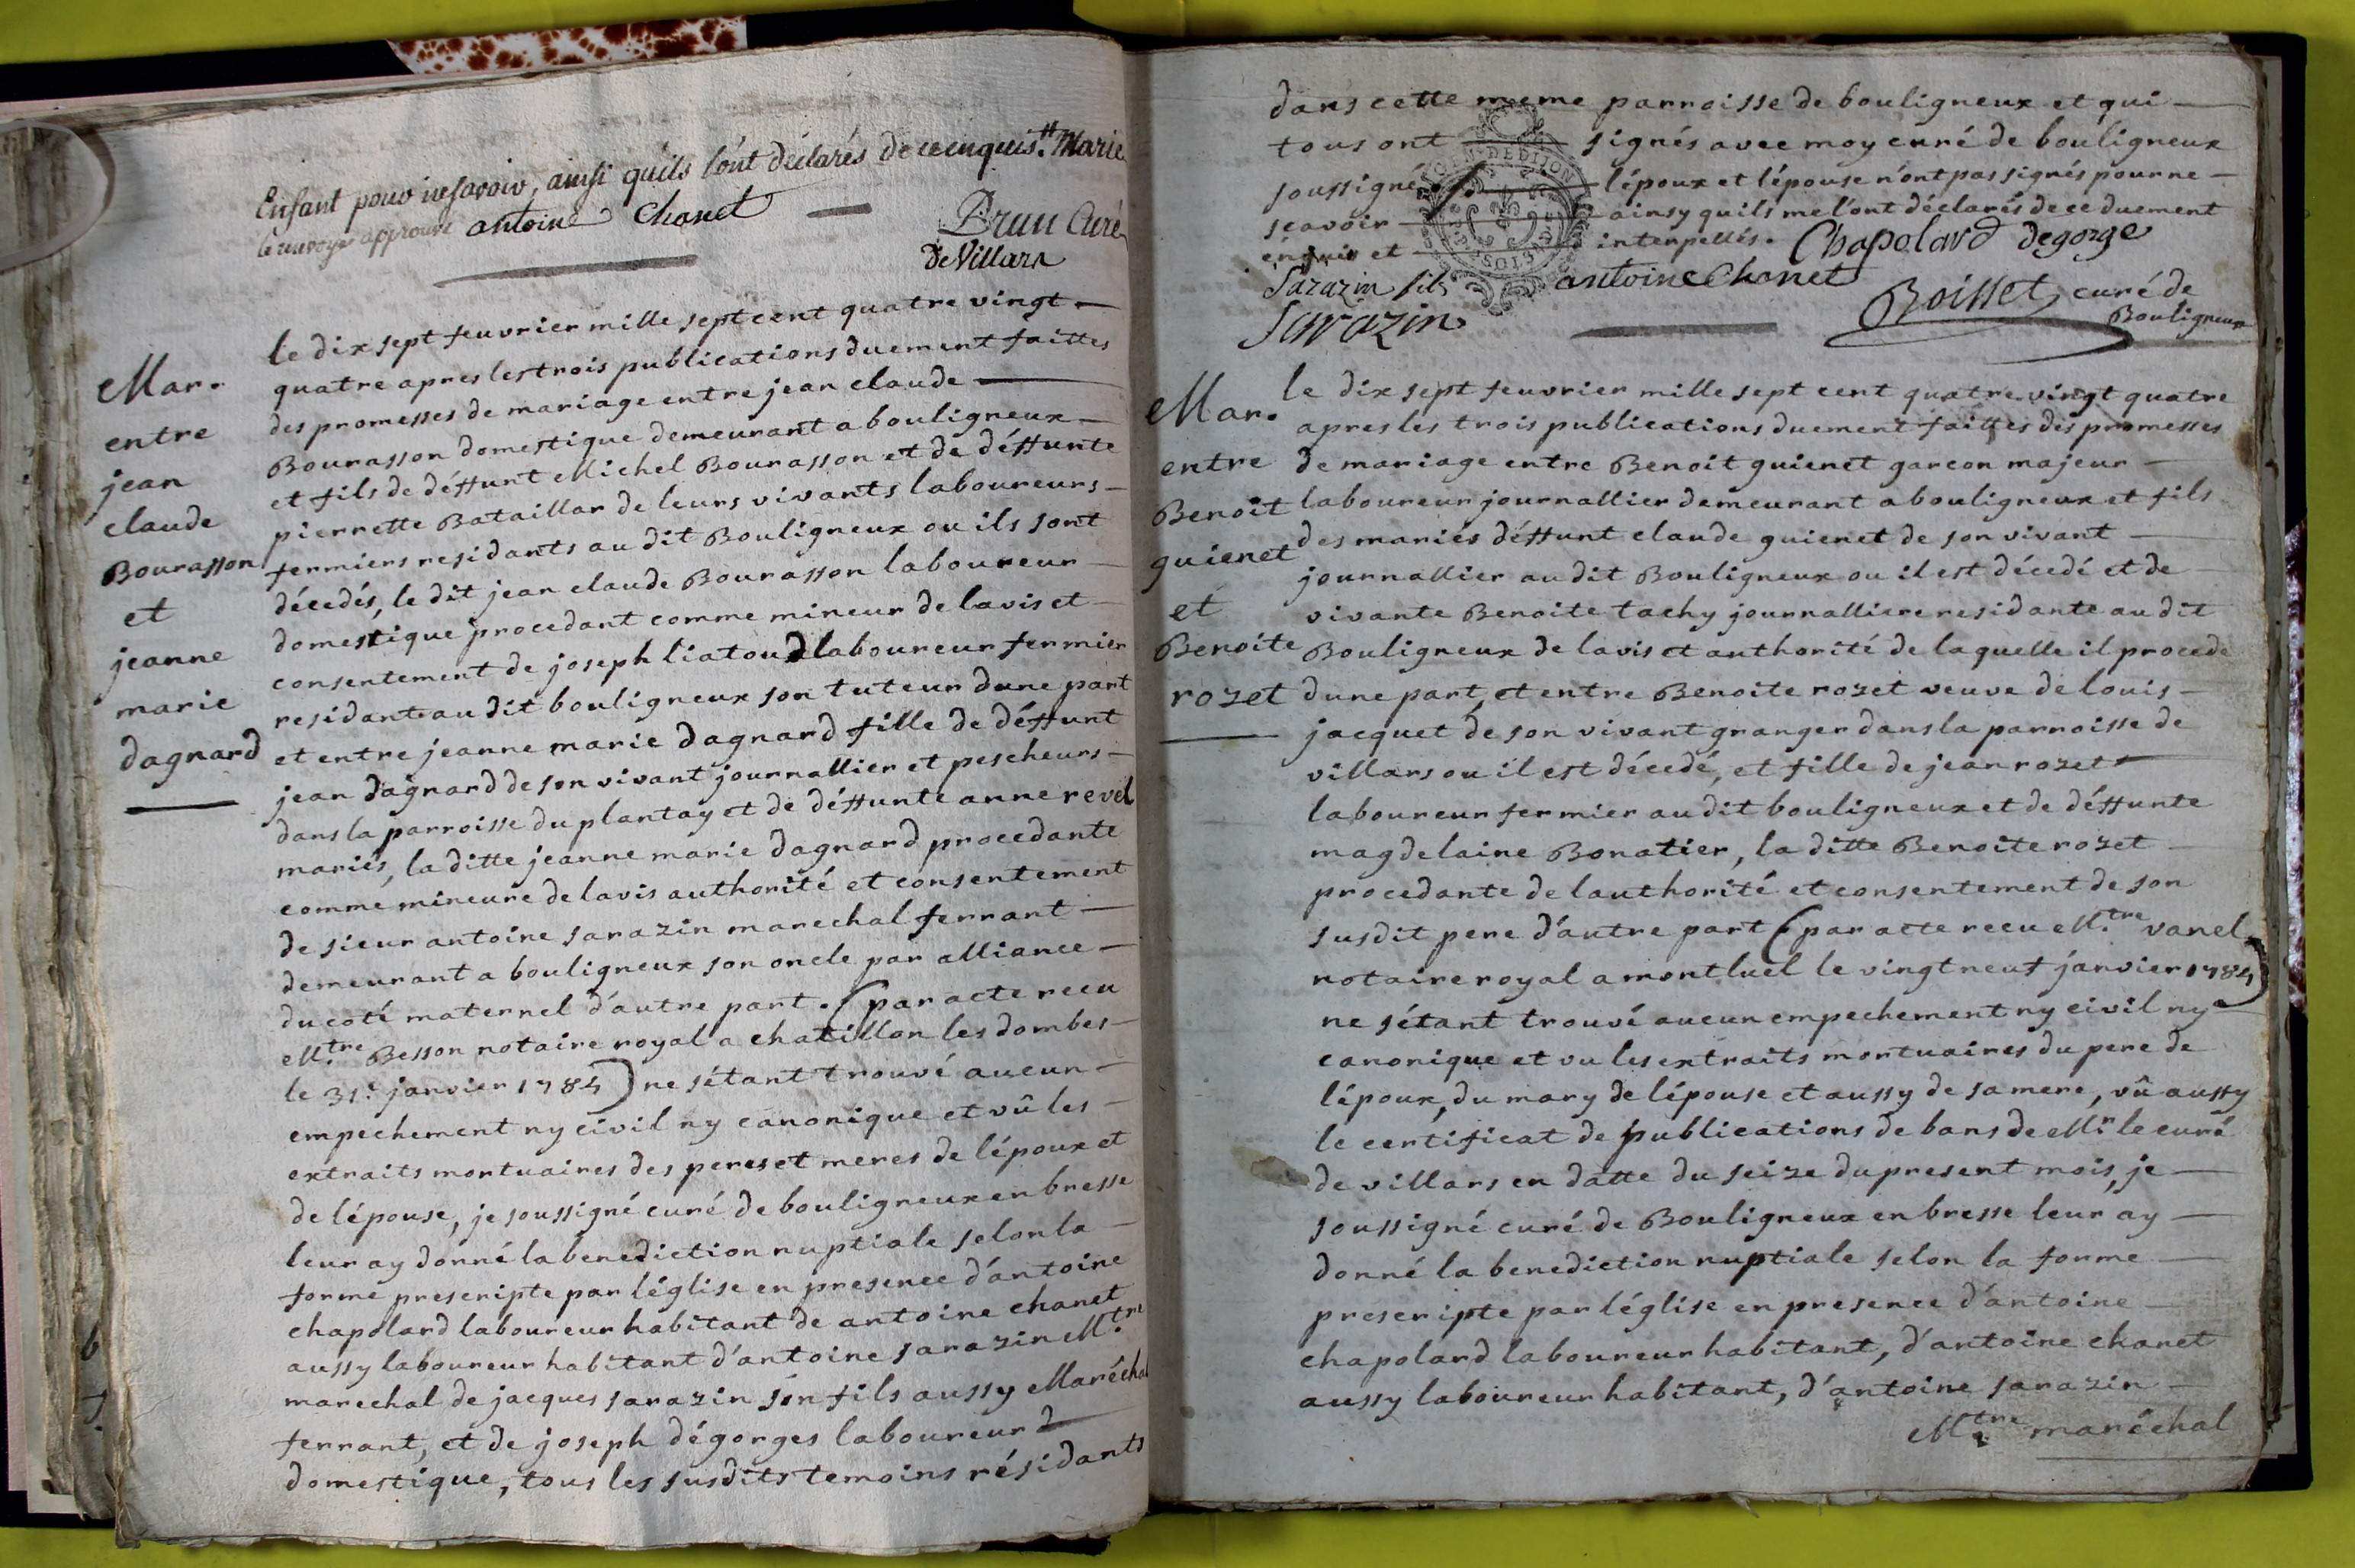 Enfant pour ne savoir, ainsi quils l'ont déclarés de ce enquis. # Marie
le renvoye approuvé antoine Chanet
Brun Curé
de Villars
Mar.
entre
jean
claude
Bourasson
et
jeanne
marie
dagnard
le dix sept feuvrier mille sept cent quatre vingt
quatre apres les trois publications duement faittes
des promesses de mariage entre jean claude
Bourasson domestique demeurant a bouligneux
et fils de déffunt Michel Bourasson et de déffunte
pierrette Bataillar de leurs vivants laboureurs
fermiers residants au dit Bouligneux ou ils sont
décedés, le dit jean claude Bourasson laboureur
domestique procedant comme mineur de lavis et
consentement de joseph liatoud laboureur fermier
residant au dit bouligneux son tuteur dune part
et entre jeanne marie dagnard fille de déffunt
jean dagnard de son vivant journallier et pescheurs
dans la parroisse du plantay et de déffunte anne revel
mariés, la ditte jeanne marie dagnard procedante
comme mineure de lavis authorité et consentement
de sieur antoine sarazin marechal ferrant
demeurant a bouligneux son oncle par alliance
du coté maternel d'autre part. (par acte recu
M.tre Besson notaire royal a chatillon les dombes
le 31: janvier 1784) ne sétant trouvé aucun
empechement ny civil ny canonique et vû les
extraits mortuaires des peres et meres de lépoux et
de lépouse, je soussigné curé de bouligneux en bresse
leur ay donné la benediction nuptiale selon la
forme prescripte par léglise en presence d'antoine
chapolard laboureur habitant de antoine chanet
aussy laboureur habitant d'antoine sarazin M.tre
marechal de jacques sarazin son fils aussy Maréchal
ferrant, et de joseph dégorges laboureur
domestique, tous les susdits temoins résidants
dans cette meme parroisse de bouligneux et qui
tous ont signés avec moy curé de bouligneux
soussigné lépoux et lépouse n'ont pas signés pour ne
scavoir ainsy quils me l'ont déclarés de ce duement
énquis et interpellés. Chapolard degorge
Sarazin fils antoine Chanet
Sarazin Boisset curé de
Bouligneux
Mar.
entre
Benoit
guienet
et
Benoite
rozet
le dix sept feuvrier mille sept cent quatre vingt quatre
apres les trois publications duement faittes des promesses
de mariage entre Benoit guienet garcon majeur
laboureur journallier demeurant a bouligneux et fils
des mariés déffunt claude guienet de son vivant
journallier au dit Bouligneux ou il est décedé et de
vivante Benoite tachy journalliere residante au dit
Bouligneux de lavis et authorité de laquelle il procede
dune part, et entre Benoite rozet veuve de louis
jacquet de son vivant granger dans la parroisse de
villars ou il est décedé, et fille de jean rozet
laboureur fermier au dit bouligneux et de déffunte
magdelaine Bonatier, la ditte Benoite rozet
procedante de lauthorité et consentement de son
susdit pere d'autre part (par acte recu M.tre vanel
notaire royal a montluel le vingt neuf janvier 1784)
ne sétant trouvé aucun empechement ny civil ny
canonique et vu les extraits mortuaires du pere de
lépoux, du mary de lépouse et aussy de sa mere, vû aussy
le certificat de publications de bans de Mr le curé
de villars en datte du seize du present mois, je
soussigné curé de Bouligneux en bresse leur ay
donné la benediction nuptiale selon la forme
prescripte par léglise en presence d'antoine
chapolard laboureur habitant, d'antoine chanet
aussy laboureur habitant, d'antoine sarazin
M.tre maréchal